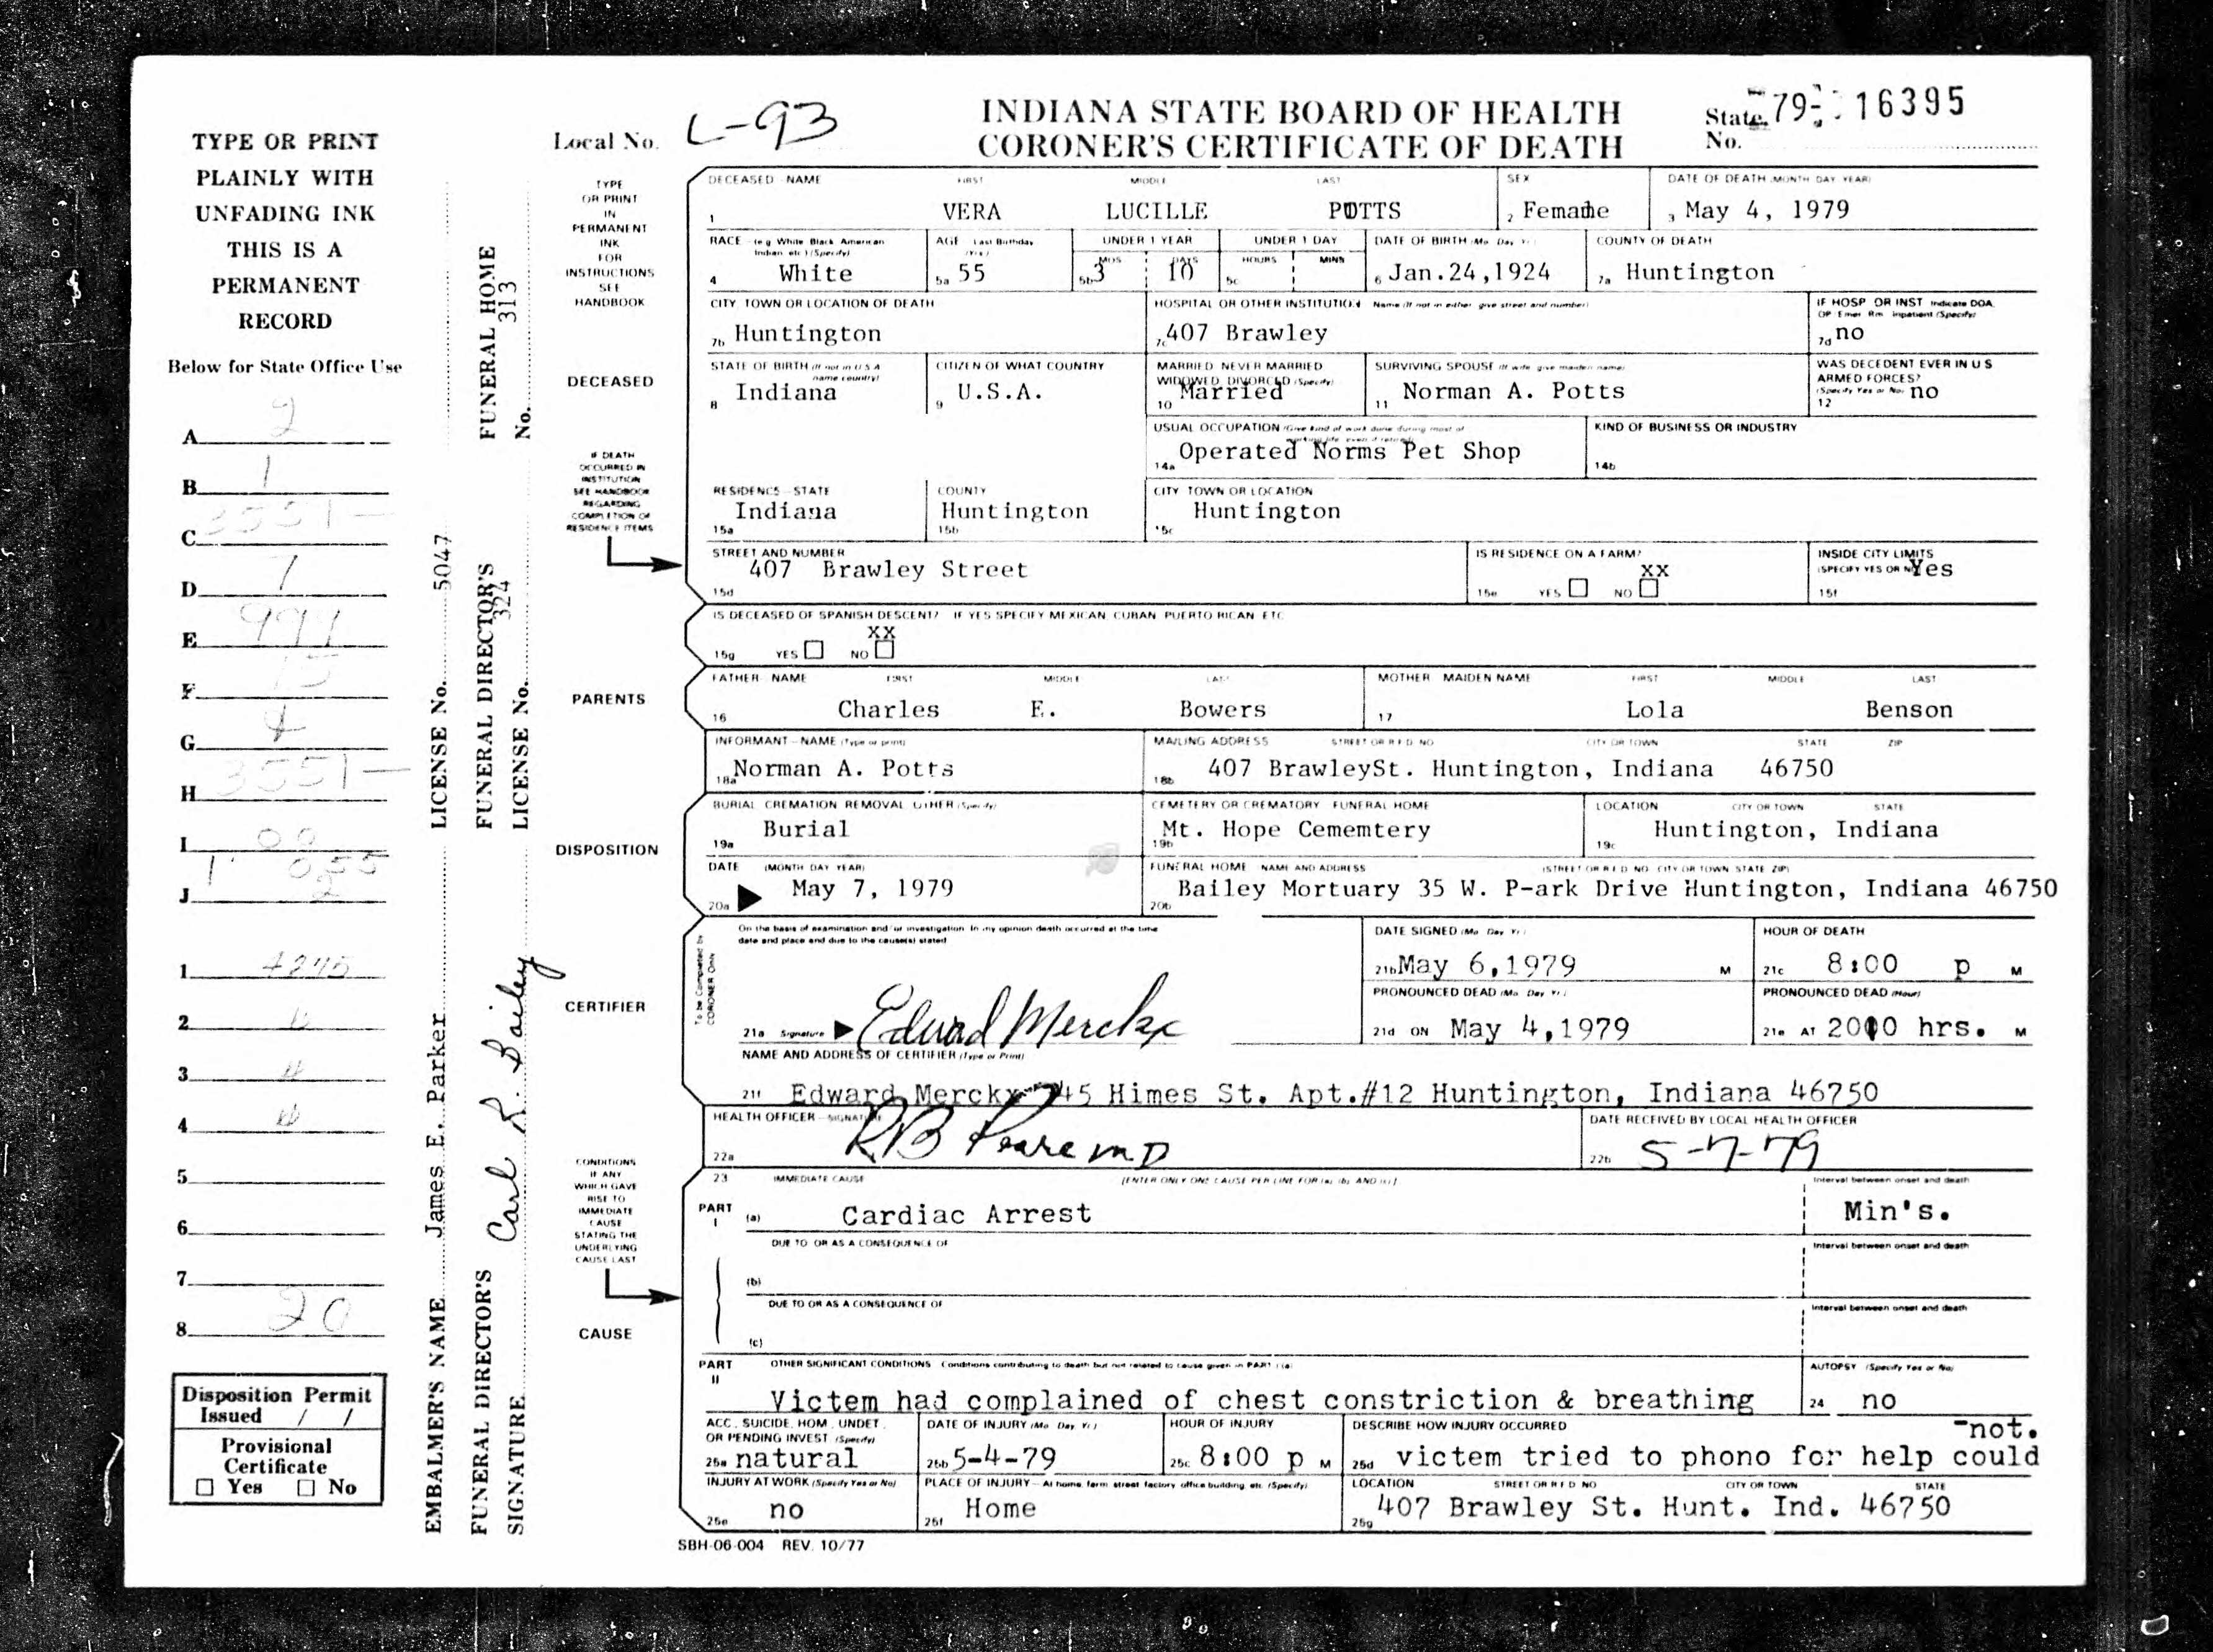 TYPE OR PRINT
PLAINLY WITH
UNFADING INK
THIS IS A
PERMANENT
RECORD
Below for State Office Use
A 2
B 1
C 3551-
D 1
E 991
F 15
G 4
H 3551-
I 00
1 055
J 2
1 4275
2
3
4
5
6
7
8 20
Disposition Permit
Issued / /
Provisional
Certificate
☐ Yes ☐ No
EMBALMER'S NAME James E. Parker LICENSE No. 5047
FUNERAL DIRECTOR'S
SIGNATURE Carl R. Bailey
FUNERAL DIRECTOR'S
LICENSE No. 324
FUNERAL HOME
No. 313
Local No. L-93
INDIANA STATE BOARD OF HEALTH
CORONER'S CERTIFICATE OF DEATH
State 79- 16395
No.
TYPE
OR PRINT
IN
PERMANENT
INK
FOR
INSTRUCTIONS
SEE
HANDBOOK
DECEASED
IF DEATH
OCCURRED IN
INSTITUTION
SEE HANDBOOK
REGARDING
COMPLETION OF
RESIDENCE ITEMS
DECEASED - NAME FIRST MIDDLE LAST SEX DATE OF DEATH (MONTH DAY YEAR)
1 VERA LUCILLE POTTS 2 Female 3 May 4, 1979
RACE - (e.g. White Black American Indian etc.) (Specify) AGE Last Birthday (Yrs.) UNDER 1 YEAR UNDER 1 DAY DATE OF BIRTH (Mo Day Yr) COUNTY OF DEATH
MOS DAYS HOURS MINS
4 White 5a 55 5b 3 10 5c 6 Jan.24,1924 7a Huntington
CITY TOWN OR LOCATION OF DEATH HOSPITAL OR OTHER INSTITUTION Name (If not in either give street and number) IF HOSP OR INST Indicate DOA OP Emer Rm Inpatient (Specify)
7b Huntington 7c 407 Brawley 7d no
STATE OF BIRTH (If not in U S A name country) CITIZEN OF WHAT COUNTRY MARRIED NEVER MARRIED WIDOWED DIVORCED (Specify) SURVIVING SPOUSE (If wife give maiden name) WAS DECEDENT EVER IN U S ARMED FORCES? (Specify Yes or No)
8 Indiana 9 U.S.A. 10 Married 11 Norman A. Potts 12 no
USUAL OCCUPATION (Give kind of work done during most of working life even if retired) KIND OF BUSINESS OR INDUSTRY
14a Operated Norms Pet Shop 14b
RESIDENCE - STATE COUNTY CITY TOWN OR LOCATION
15a Indiana 15b Huntington 15c Huntington
STREET AND NUMBER IS RESIDENCE ON A FARM? INSIDE CITY LIMITS (SPECIFY YES OR NO)
15d 407 Brawley Street 15e YES ☐ NO ☐ XX 15f Yes
IS DECEASED OF SPANISH DESCENT? IF YES SPECIFY MEXICAN CUBAN PUERTO RICAN ETC
15g YES ☐ NO ☐ XX
PARENTS
FATHER NAME FIRST MIDDLE LAST MOTHER MAIDEN NAME FIRST MIDDLE LAST
16 Charles E. Bowers 17 Lola Benson
INFORMANT - NAME (Type or print) MAILING ADDRESS STREET OR R F D NO CITY OR TOWN STATE ZIP
18a Norman A. Potts 18b 407 BrawleySt. Huntington, Indiana 46750
DISPOSITION
BURIAL CREMATION REMOVAL OTHER (Specify) CEMETERY OR CREMATORY FUNERAL HOME LOCATION CITY OR TOWN STATE
19a Burial 19b Mt. Hope Cememtery 19c Huntington, Indiana
DATE (MONTH DAY YEAR) FUNERAL HOME NAME AND ADDRESS (STREET OR R F D NO CITY OR TOWN STATE ZIP)
20a May 7, 1979 20b Bailey Mortuary 35 W. P-ark Drive Huntington, Indiana 46750
CERTIFIER
To be Completed by CORONER Only
On the basis of examination and/or investigation In my opinion death occurred at the time
date and place and due to the cause(s) stated
DATE SIGNED (Mo Day Yr) HOUR OF DEATH
21b May 6,1979 M 21c 8:00 p M
PRONOUNCED DEAD (Mo Day Yr) PRONOUNCED DEAD (Hour)
21a Signature Edward Merckx 21d ON May 4,1979 21e AT 2000 hrs. M
NAME AND ADDRESS OF CERTIFIER (Type or Print)
21f Edward Merckx 745 Himes St. Apt.#12 Huntington, Indiana 46750
HEALTH OFFICER - SIGNATURE DATE RECEIVED BY LOCAL HEALTH OFFICER
22a RB Peare MD 22b 5-7-79
CONDITIONS
IF ANY
WHICH GAVE
RISE TO
IMMEDIATE
CAUSE
STATING THE
UNDERLYING
CAUSE LAST
CAUSE
23 IMMEDIATE CAUSE [ENTER ONLY ONE CAUSE PER LINE FOR (a) (b) AND (c)] Interval between onset and death
PART I (a) Cardiac Arrest Min's.
DUE TO OR AS A CONSEQUENCE OF Interval between onset and death
(b)
DUE TO OR AS A CONSEQUENCE OF Interval between onset and death
(c)
PART II OTHER SIGNIFICANT CONDITIONS Conditions contributing to death but not related to cause given in PART I (a) AUTOPSY (Specify Yes or No)
Victem had complained of chest constriction & breathing 24 no
ACC. SUICIDE, HOM. UNDET. OR PENDING INVEST. (Specify) DATE OF INJURY (Mo Day Yr) HOUR OF INJURY DESCRIBE HOW INJURY OCCURRED -not.
25a natural 25b 5-4-79 25c 8:00 p M 25d victem tried to phono for help could
INJURY AT WORK (Specify Yes or No) PLACE OF INJURY - At home farm street factory office building etc (Specify) LOCATION STREET OR R F D NO CITY OR TOWN STATE
25e no 25f Home 25g 407 Brawley St. Hunt. Ind. 46750
SBH-06-004 REV. 10/77